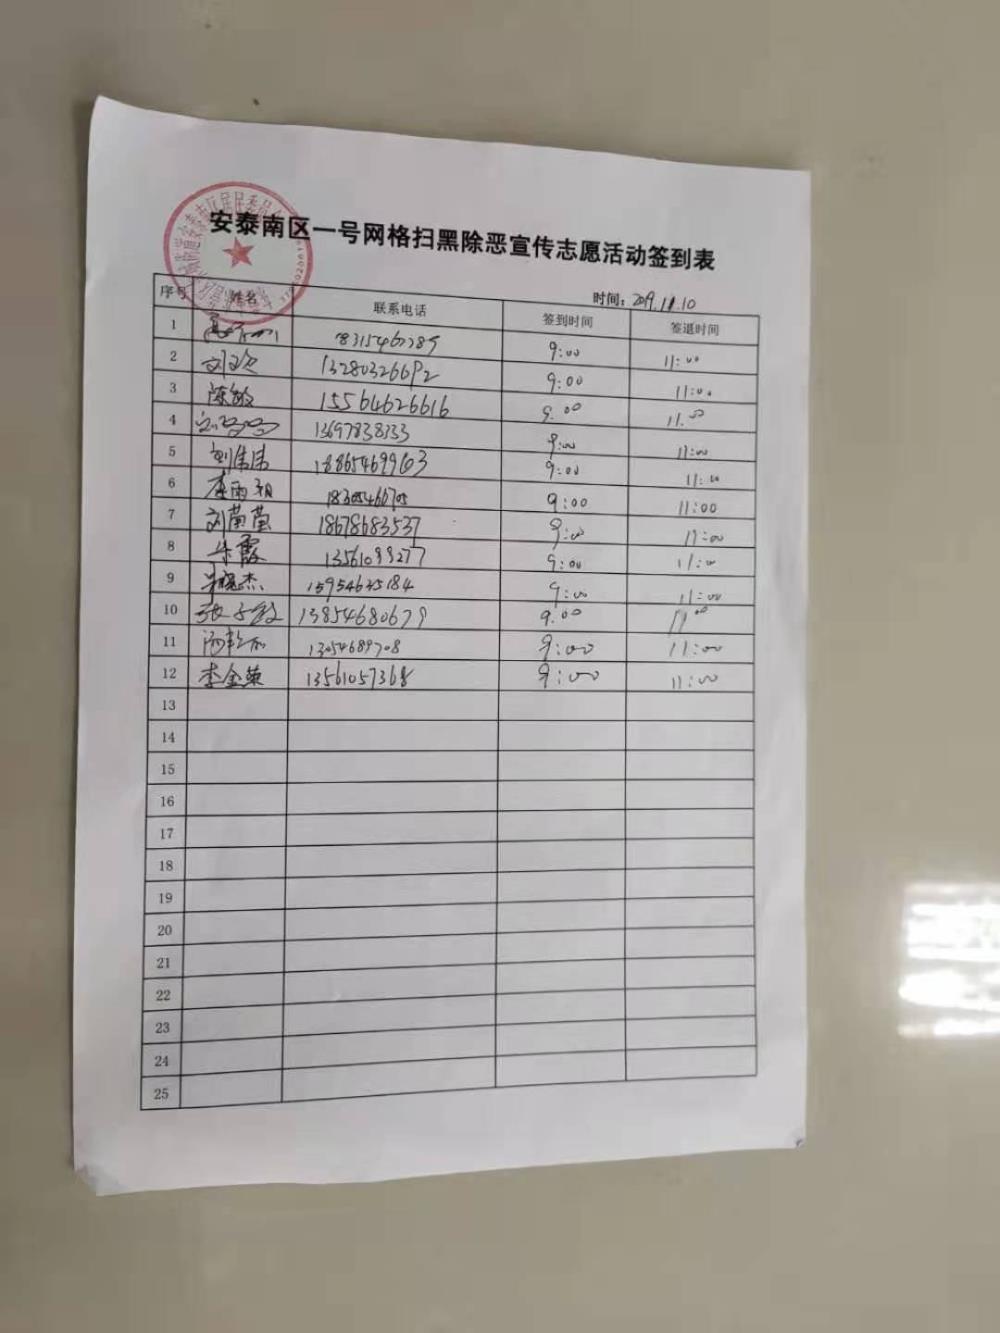 安泰南区一号网格扫黑除恶宣传志愿活动签到表
时间：2019.11.10
序号 姓名 联系电话 签到时间 签退时间
1 9:00 11:00
2 13280326692 9:00 11:00
3 陈敏 15564626616 9:00 11:00
4 13697838333 9:00 11:00
5 刘伟伟 18865469963 9:00 11:00
6 18305466705 9:00 11:00
7 刘蕾蕾 18678683537 9:00 11:00
8 朱霞 13561099277 9:00 11:00
9 15954635184 9:00 11:00
10 13854680679 9:00 11:00
11 13054689708 9:00 11:00
12 李金英 13561057368 9:00 11:00
13
14
15
16
17
18
19
20
21
22
23
24
25